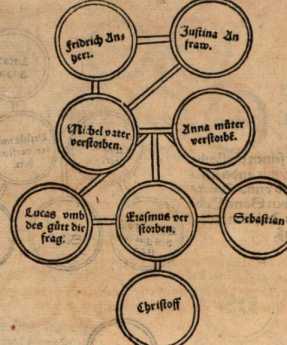 Fridrich An
herr.
Justina An
fraw.
Michel vater
verstorben.
Anna müter
verstorbē.
Lucas vmb
des gůtt die
frag.
Erasmus ver
storben.
Sebastian
Christoff